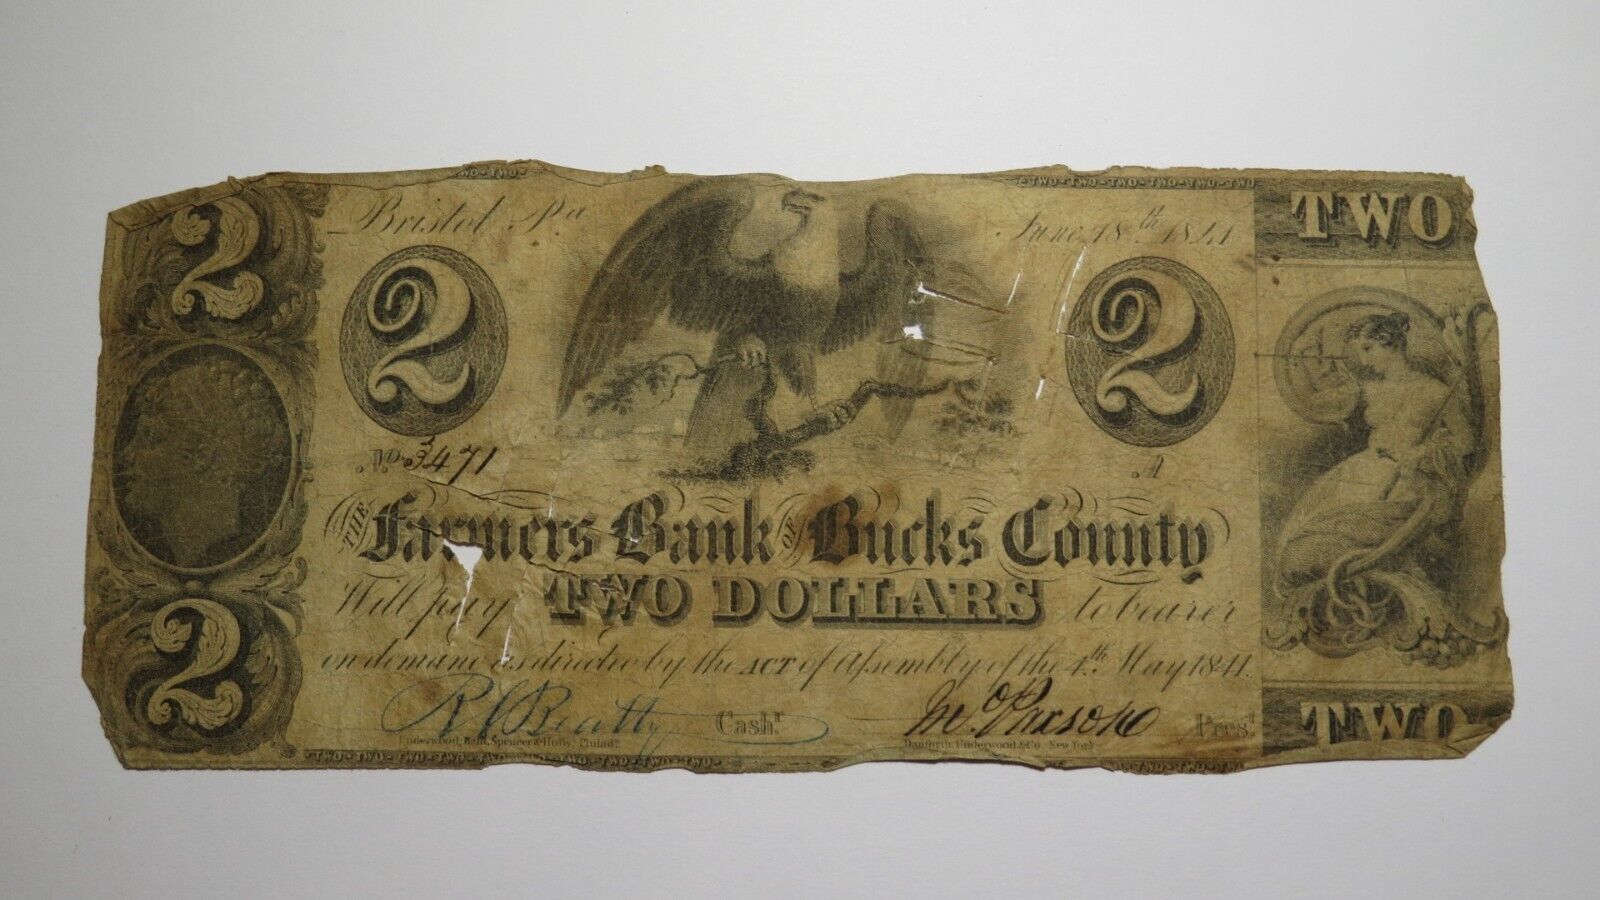 TWO-TWO-
-TWO-TWO-TWO-TWO-TWO-TWO
2
Bristol Pa
June 18th 1841
TWO
2
2
No. 3471
A
THE Farmers Bank OF Bucks County
Will pay TWO DOLLARS to bearer
on demand as directed by the ACT of Assembly of the 4th May 1841.
2
R C Beatty Cashr.
Jno. Paxson Prest.
TWO
Underwood, Bald, Spencer & Hufty, Philada.
Danforth, Underwood & Co. New York
-TWO-TWO-TWO-TWO-TWO-TWO-TWO-
-TWO-TWO-TWO